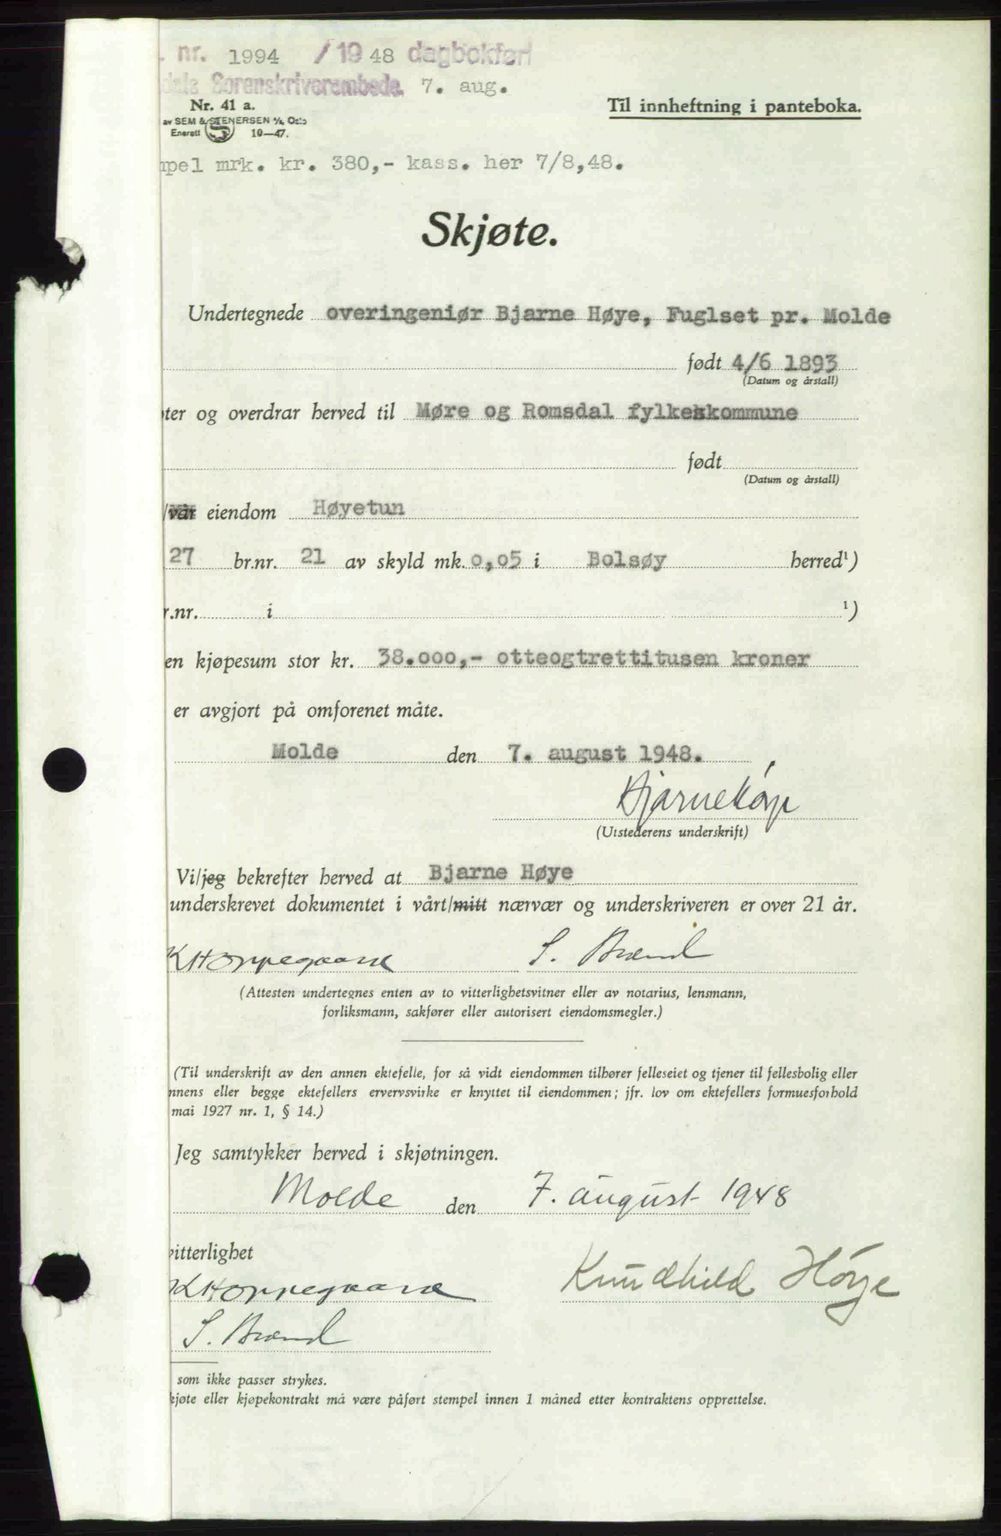 nr. 1994 /1948 dagbokført
Sorenskriverembede. 7. aug.
Nr. 41 a.
Til innheftning i panteboka.
av SEM & STENERSEN A/S, Oslo
Enerett 10—47.
mpel mrk. kr. 380,- kass. her 7/8,48.
Skjøte.
Undertegnede overingeniør Bjarne Høye, Fuglset pr. Molde
født 4/6 1893
(Datum og årstall)
ter og overdrar herved til Møre og Romsdal fylkeskommune
født
(Datum og årstall)
/vår eiendom Høyetun
27 br.nr. 21 av skyld mk. 0,05 i Bolsøy herred¹)
r.nr. i ¹)
en kjøpesum stor kr. 38.000,- otteogtrettitusen kroner
er avgjort på omforenet måte.
Molde den 7. august 1948.
Bjarne Høye
(Utstederens underskrift)
Vi/jeg bekrefter herved at Bjarne Høye
underskrevet dokumentet i vårt/mitt nærvær og underskriveren er over 21 år.
K Hoppegaard S. Brænd
(Attesten undertegnes enten av to vitterlighetsvitner eller av notarius, lensmann,
forliksmann, sakfører eller autorisert eiendomsmegler.)
(Til underskrift av den annen ektefelle, for så vidt eiendommen tilhører felleseiet og tjener til fellesbolig eller
nnens eller begge ektefellers ervervsvirke er knyttet til eiendommen; jfr. lov om ektefellers formuesforhold
mai 1927 nr. 1, § 14.)
Jeg samtykker herved i skjøtningen.
Molde den 7. august 1948
vitterlighet
K Hoppegaard Knudhild Høye
S. Brænd
som ikke passer strykes.
kjøte eller kjøpekontrakt må være påført stempel innen 1 måned etter kontraktens opprettelse.